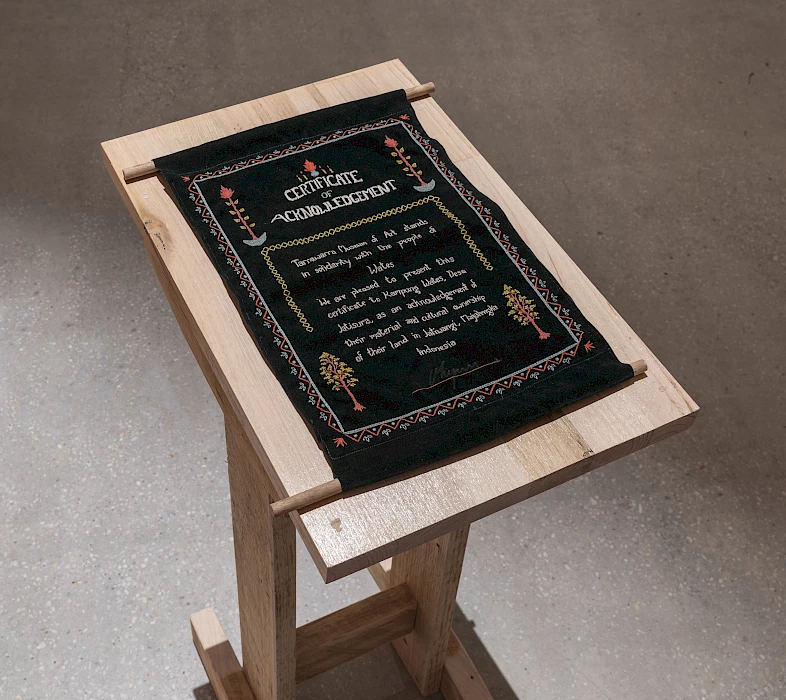 CERTIFICATE
OF
ACKNOWLEDGEMENT
Tarrawarra Museum of Art stands
in solidarity with the people of
Wates
We are pleased to present this
certificate to Kampung Wates, Desa
Jatisura, as an acknowledgement of
their material and cultural ownership
of their land in Jatiwangi, Majalengka
Indonesia